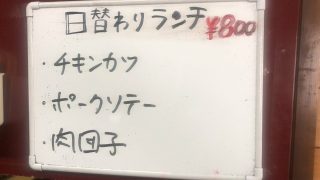 日替わりランチ ¥800
・チキンカツ
・ポークソテー
・肉団子